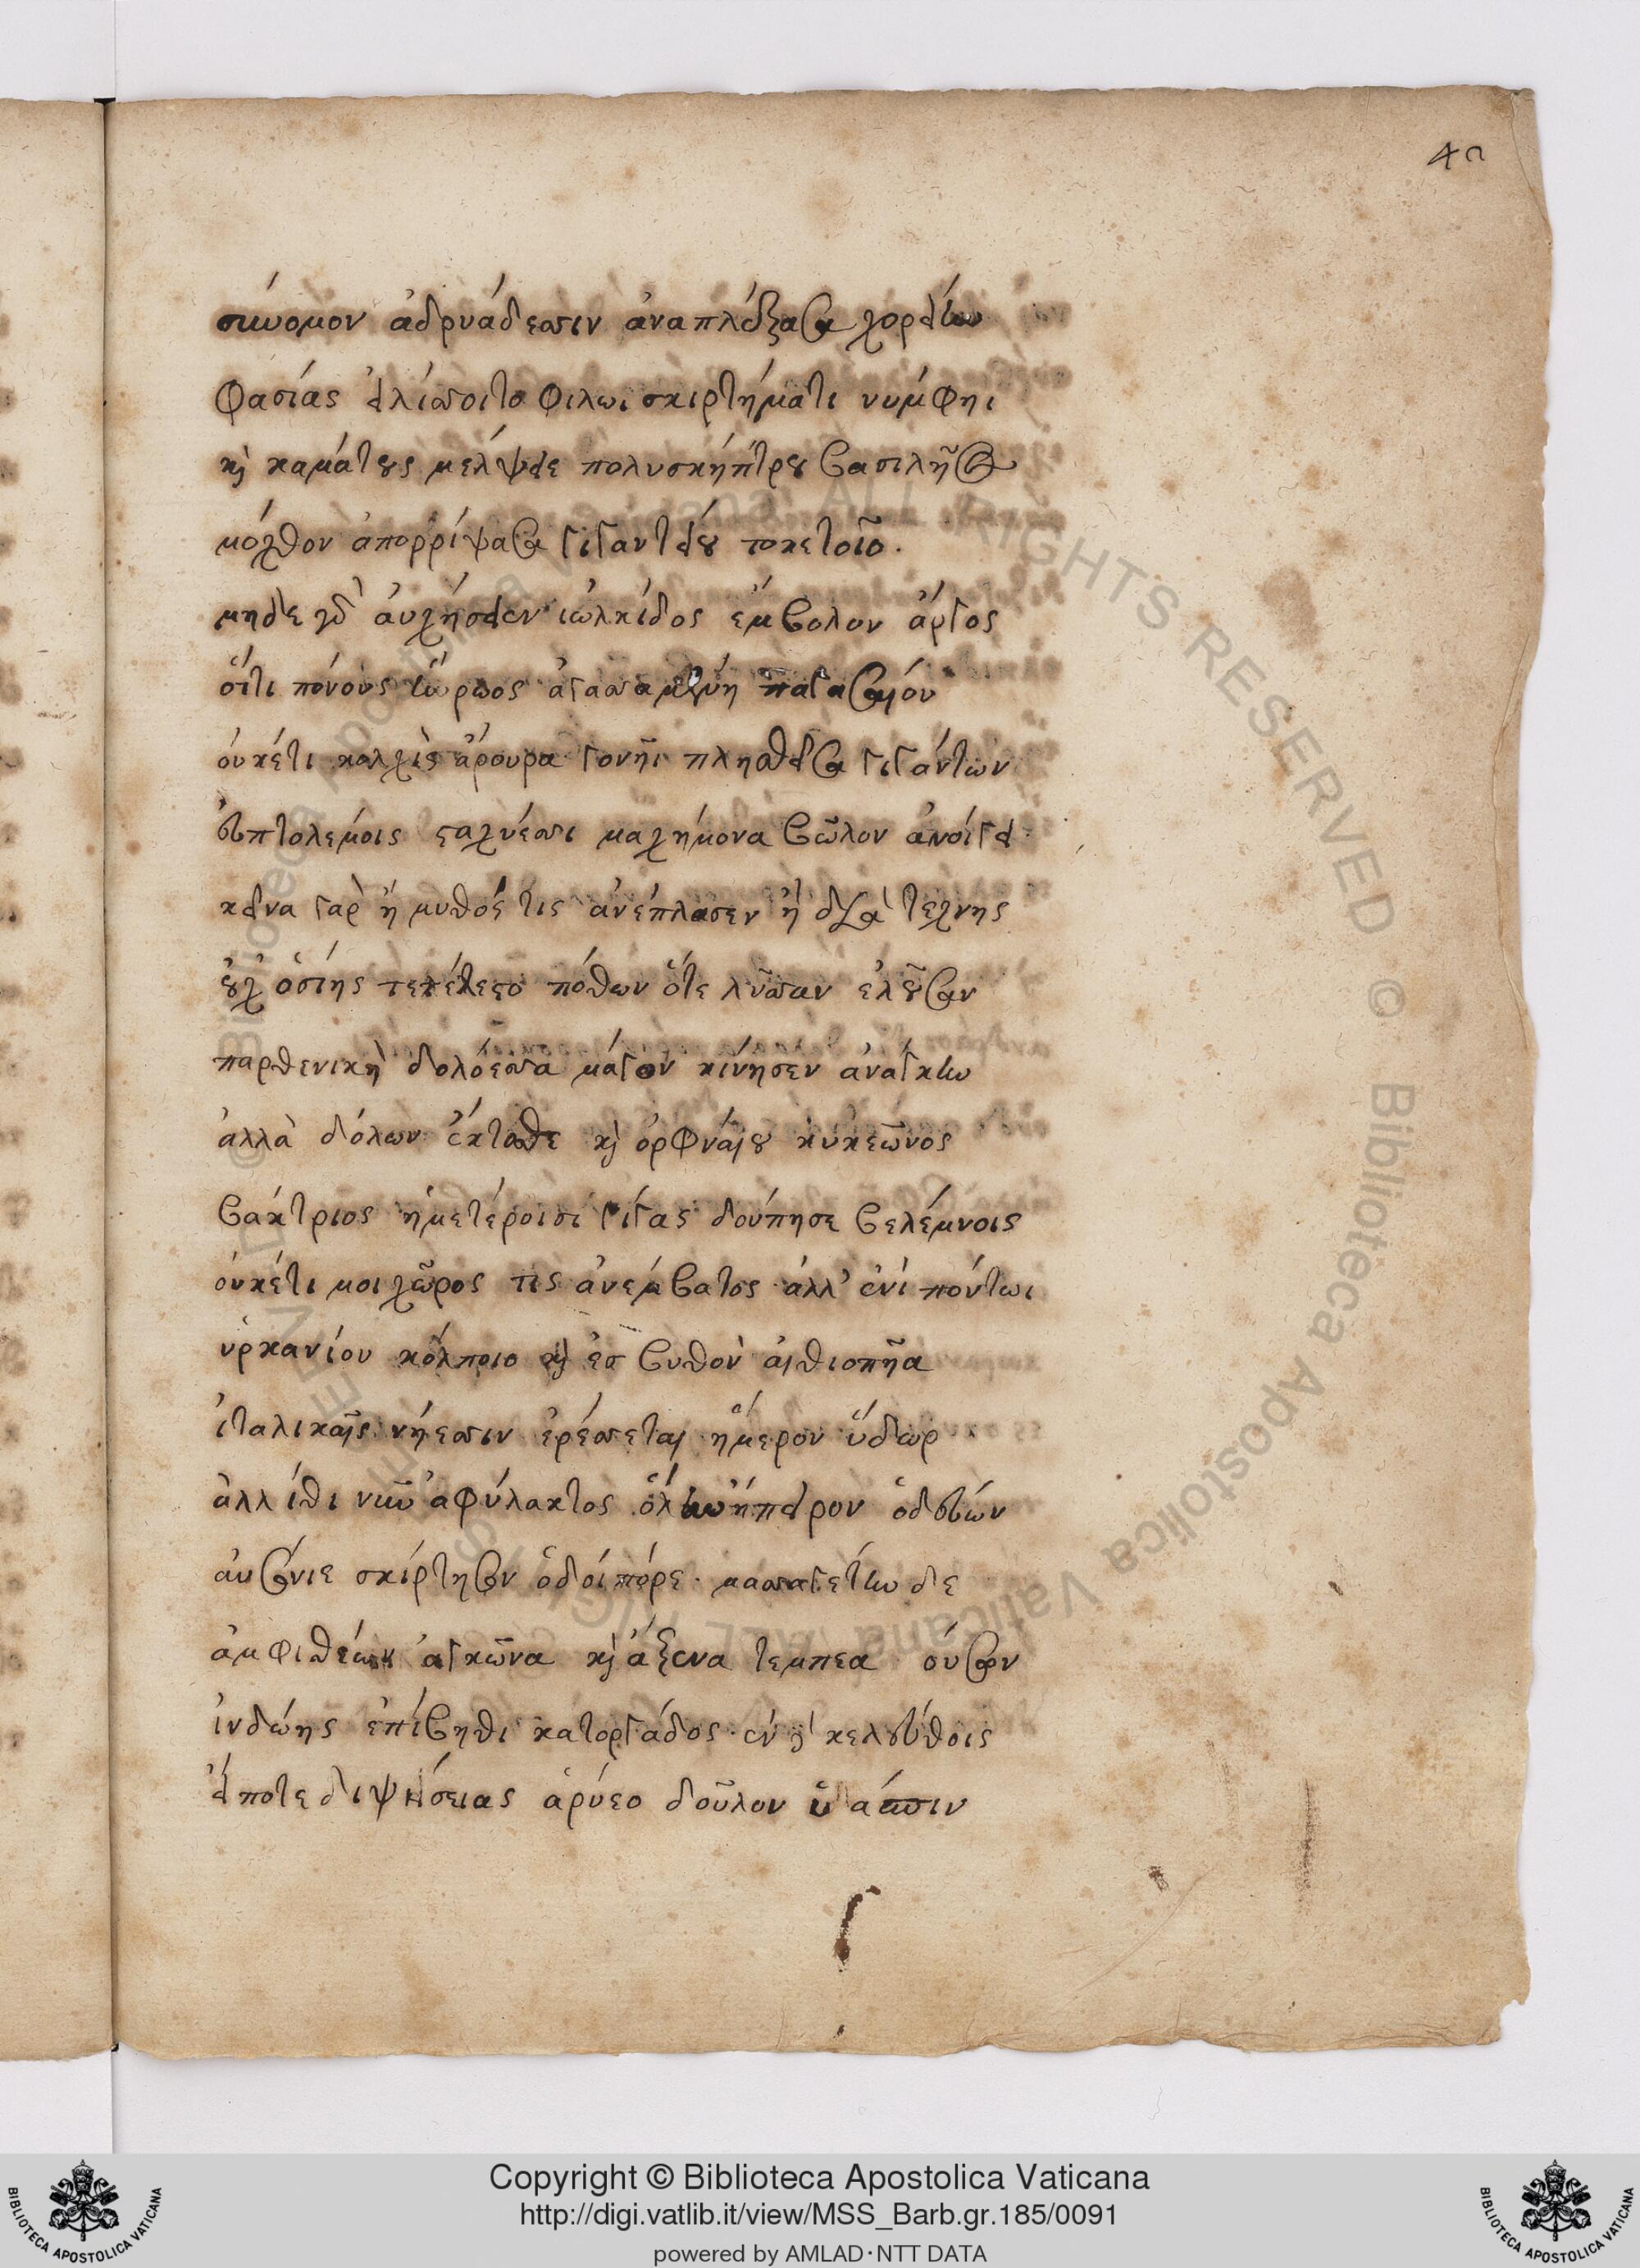 42
σύννομον ἀδρυάδεσσιν ἀναπλέξασα χορείην
φασίας εἰλίσσοιτο φιλωι σκιρτήματι νυμφηι
καὶ καμάτους μέλψειε πολυσκήπτρου βασιλῆος
μόχθον ἀπορρίψασα γιγαντείου τοκετοῖο.
μηδὲ
αὐχήσειεν ἰωλκίδος ἔμβολον ἀργος
ὅττι πόνους ἥρωος ἀγασσαμένη παγασαίου
οὐκέτι κολχὶς ἄρουρα γονῆι πλησθεῖσα γιγάντων
εὐπτολέμοις σταχύεσσι μαχήμονα βῶλον ἀνοίγει
κεῖνα γαρ ἢ μυθός τις ἀνέπλασεν ἢ δια τέχνης
οὐχ ὁσίης τετέλεστο πόθων ὅτε λύσσαν ἑλοῦσαν
παρθενικὴ δολόεσσα μάγον κίνησεν ἀνάγκην
ἀλλὰ δόλων ἔκτοσθε καὶ ὀρφναίου κυκεῶνος
βάκτριος ἡμετέροισι γίγας δούπησε βελέμνοις
οὐκέτι μοι χῶρος τις ἀνέμβατος ἀλλ' ἐνὶ πόντωι
ὑρκανίου κόλποιο καὶ ἐσ βυθὸν αἰθιοπῆα
ἰταλικαῖς νήεσσιν ἐρέσσεται ἥμερον ὕδωρ
ἀλλ ἴθι νῦν ἀφύλακτος ὅλην ἤπειρον ὁδεύων
αὐσόνιε σκίρτησον ὁδοίπόρε. μασσαγέτην δε
ἀμφιθέων ἀγκῶνα καὶ ἄξενα τεμπεα σούσων
ἰνδώης ἐπίβηθι κατοργάδος. ἐν δὲ κελεύθοις
εἴποτε διψήσειας ἀρύεο δοῦλον ὑδάσπην
Copyright © Biblioteca Apostolica Vaticana
http://digi.vatlib.it/view/MSS_Barb.gr.185/0091
powered by AMLAD·NTT DATA
BIBLIOTECA APOSTOLICA VATICANA
BIBLIOTECA APOSTOLICA VATICANA